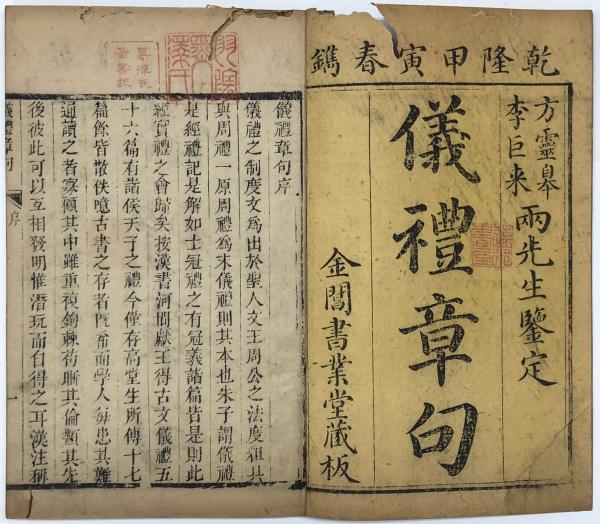 乾隆甲寅春鐫
方靈皋
李巨來
兩先生鑒定
儀禮章句
金閶書業堂藏板
儀禮章句序
儀禮之制度文為出於聖人文王周公之法度粗具
與周禮一原周禮為末儀禮則其本也朱子謂儀禮
是經禮記是解如士冠禮之有冠義諸篇皆是則此
經實禮之會歸矣按漢書河間獻王得古文儀禮五
十六篇有諸侯天子之禮今僅存高堂生所傳十七
篇餘皆散佚噫古書之存者既希而學人每患其難
通讀之者寡顧其中雖重複鉤棘苟晰其倫類其先
後彼此可以互相發明惟潛玩而自得之耳漢注稱
儀禮章句
序
一